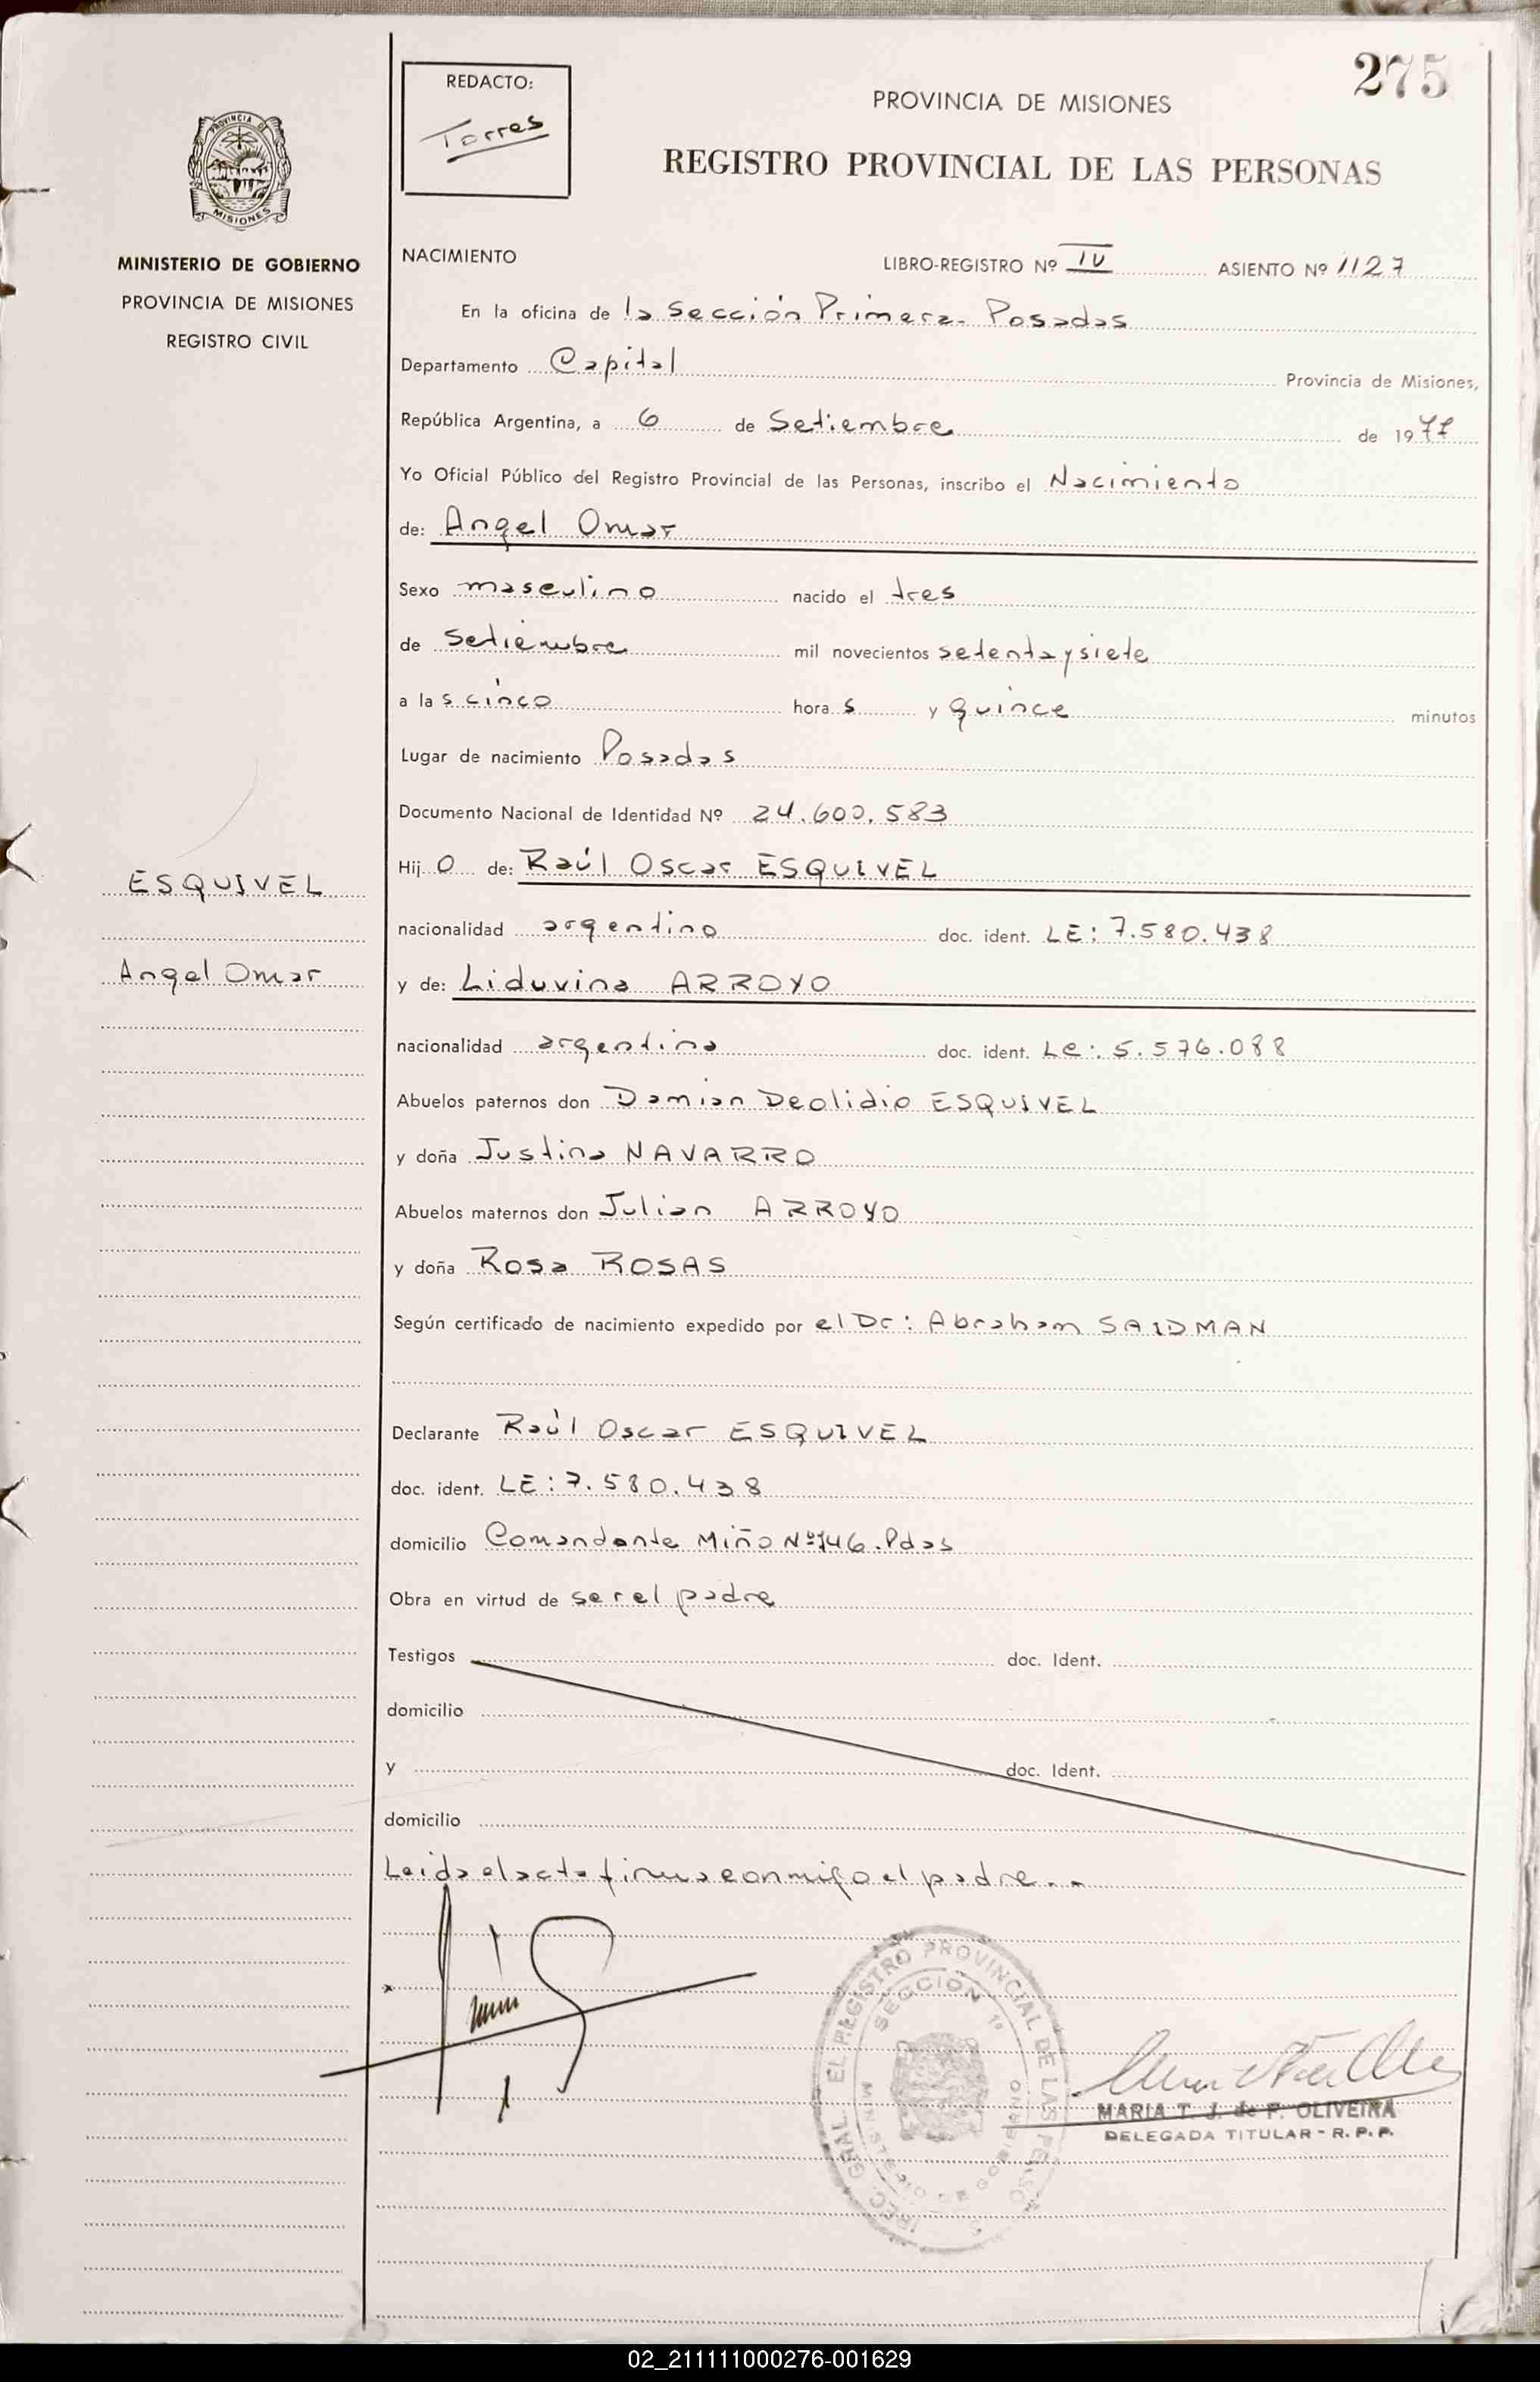 275
REDACTO:
Torres
PROVINCIA DE MISIONES
REGISTRO PROVINCIAL DE LAS PERSONAS
PROVINCIA DE
MISIONES
MINISTERIO DE GOBIERNO
PROVINCIA DE MISIONES
REGISTRO CIVIL
NACIMIENTO LIBRO-REGISTRO Nº IV ASIENTO Nº 1127
En la oficina de la Sección Primera- Posadas
Departamento Capital Provincia de Misiones,
República Argentina, a 6 de Setiembre de 1977
Yo Oficial Público del Registro Provincial de las Personas, inscribo el Nacimiento
de: Angel Omar
Sexo masculino nacido el tres
de Setiembre mil novecientos setentaysiete
a las cinco horas y quince minutos
Lugar de nacimiento Posadas
Documento Nacional de Identidad Nº 24.600.583
Hijo de: Raúl Oscar ESQUIVEL
ESQUIVEL
nacionalidad argentino doc. ident. LE: 7.580.438
Angel Omar
y de: Liduvina ARROYO
nacionalidad argentina doc. ident. Le: 5.576.088
Abuelos paternos don Damian Deolidio ESQUIVEL
y doña Justina NAVARRO
Abuelos maternos don Julian ARROYO
y doña Rosa ROSAS
Según certificado de nacimiento expedido por el Dr: Abraham SAIDMAN
Declarante Raúl Oscar ESQUIVEL
doc. ident. LE: 7.580.438
domicilio Comandante Miño Nº 146. Pdas
Obra en virtud de ser el padre
Testigos doc. Ident.
domicilio
y doc. Ident.
domicilio
Leida el acta firma conmigo el padre..
EL REGISTRO PROVINCIAL DE LAS PERSO
SECCION 1º
MINISTERIO DE GOBIERNO
MARIA T. J. de F. OLIVEIRA
DELEGADA TITULAR - R. P. P.
02_211111000276-001629